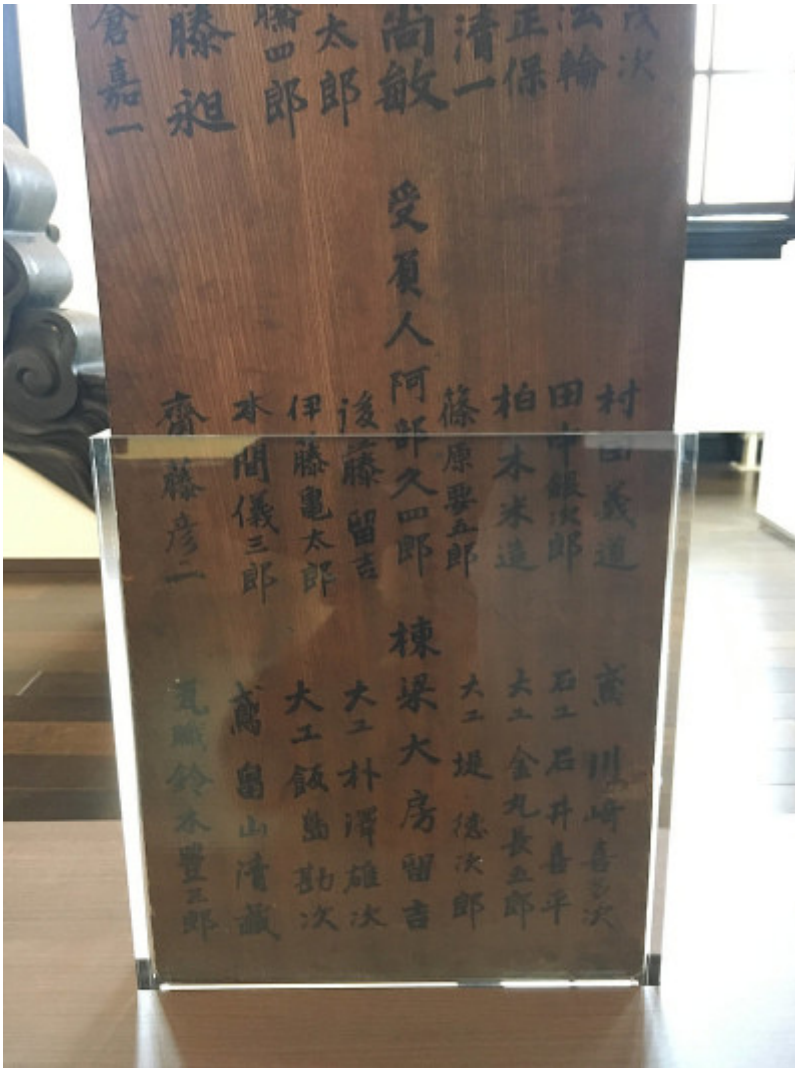 茂次
法輪
正保
清一
尚敏
太郎
勝四郎
藤昶
倉嘉一
村田義道
田中銀次郎
柏木米造
篠原要五郎
受負人 阿部久四郎
後藤留吉
伊藤亀太郎
本間儀三郎
齋藤彦二
鳶 川崎喜多次
石工 石井喜平
大工 金丸長五郎
大工 堤徳次郎
棟梁 大房留吉
大工 朴澤雄次
大工 飯島勘次
鳶 畠山清藏
瓦職 鈴木豊三郎